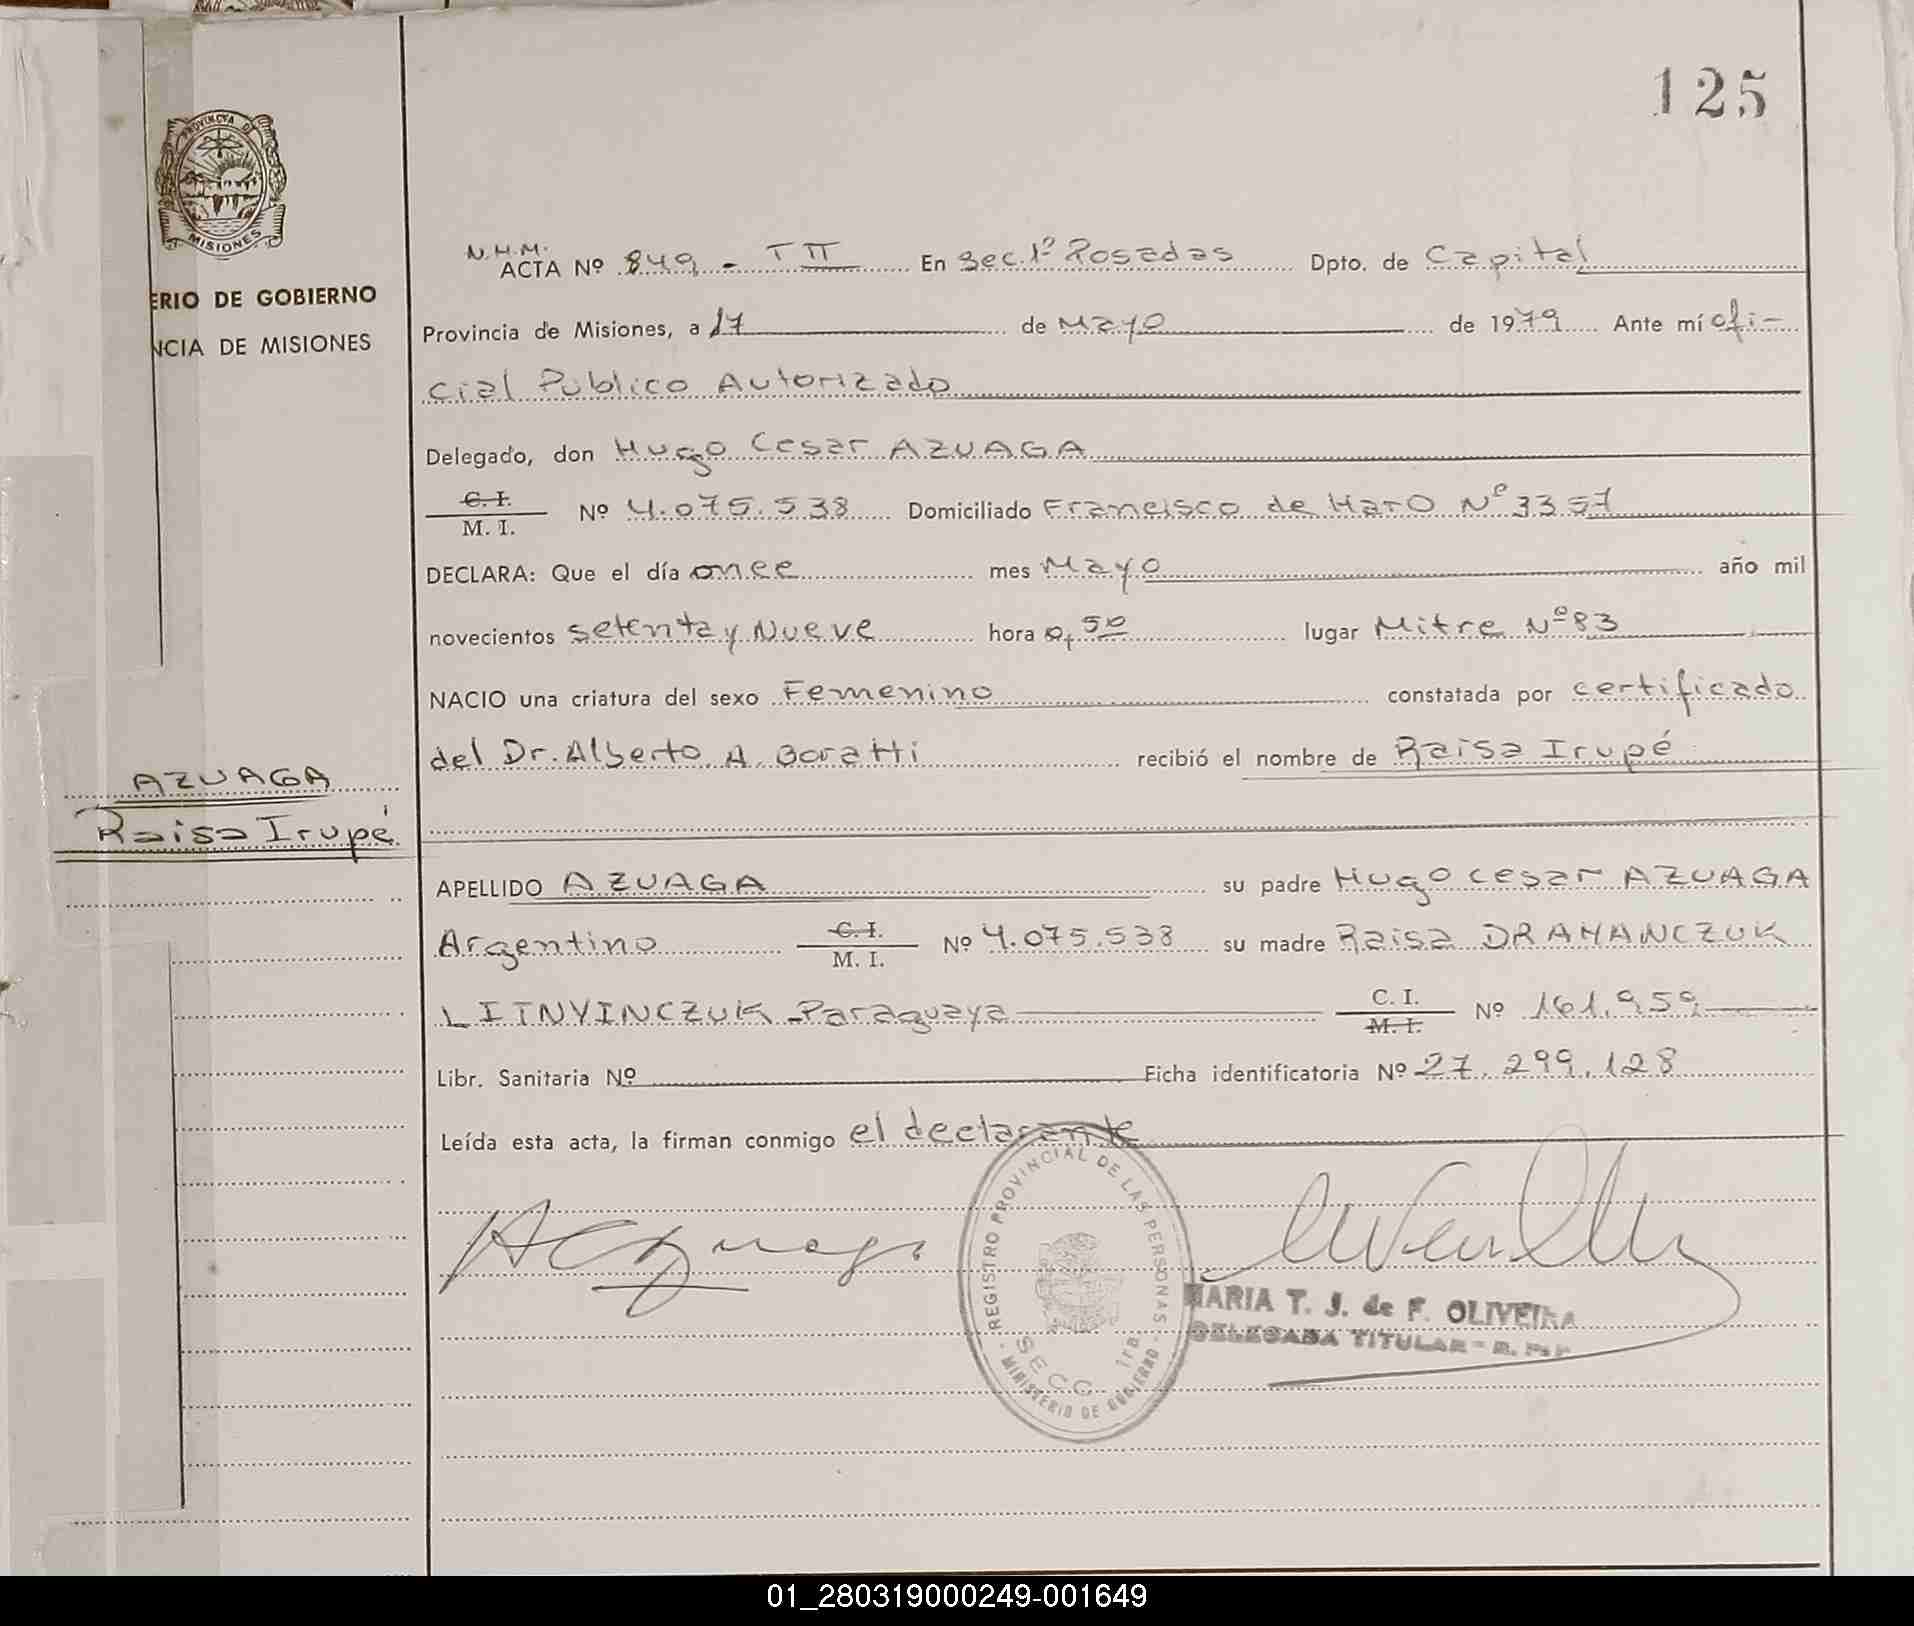 125
PROVINCIA DE
MISIONES
ERIO DE GOBIERNO
NCIA DE MISIONES
N.H.M.
ACTA Nº 849 - T II En Sec. 1º Posadas Dpto. de Capital
Provincia de Misiones, a 17 de Mayo de 1979 Ante mí ofi-
cial Público Autorizado
Delegado, don Hugo Cesar AZUAGA
C. I.
M. I. Nº 4.075.538 Domiciliado Francisco de Haro Nº 3357
DECLARA: Que el día once mes Mayo año mil
novecientos setenta y Nueve hora 0,50 lugar Mitre Nº 83
NACIO una criatura del sexo Femenino constatada por certificado
del Dr. Alberto A. Boratti recibió el nombre de Raisa Irupé
AZUAGA
Raisa Irupé
APELLIDO AZUAGA su padre Hugo Cesar AZUAGA
Argentino C. I. M. I. Nº 4.075.538 su madre Raisa DRAHANCZUK
LITNVINCZUK - Paraguaya C. I. M. I. Nº 161.959
Libr. Sanitaria Nº Ficha identificatoria Nº 27.299.128
Leída esta acta, la firman conmigo el declarante
REGISTRO PROVINCIAL DE LAS PERSONAS
SECC. 1ra.
- MINISTERIO DE GOBIERNO -
MARIA T. J. de F. OLIVEIRA
DELEGADA TITULAR -
01_280319000249-001649